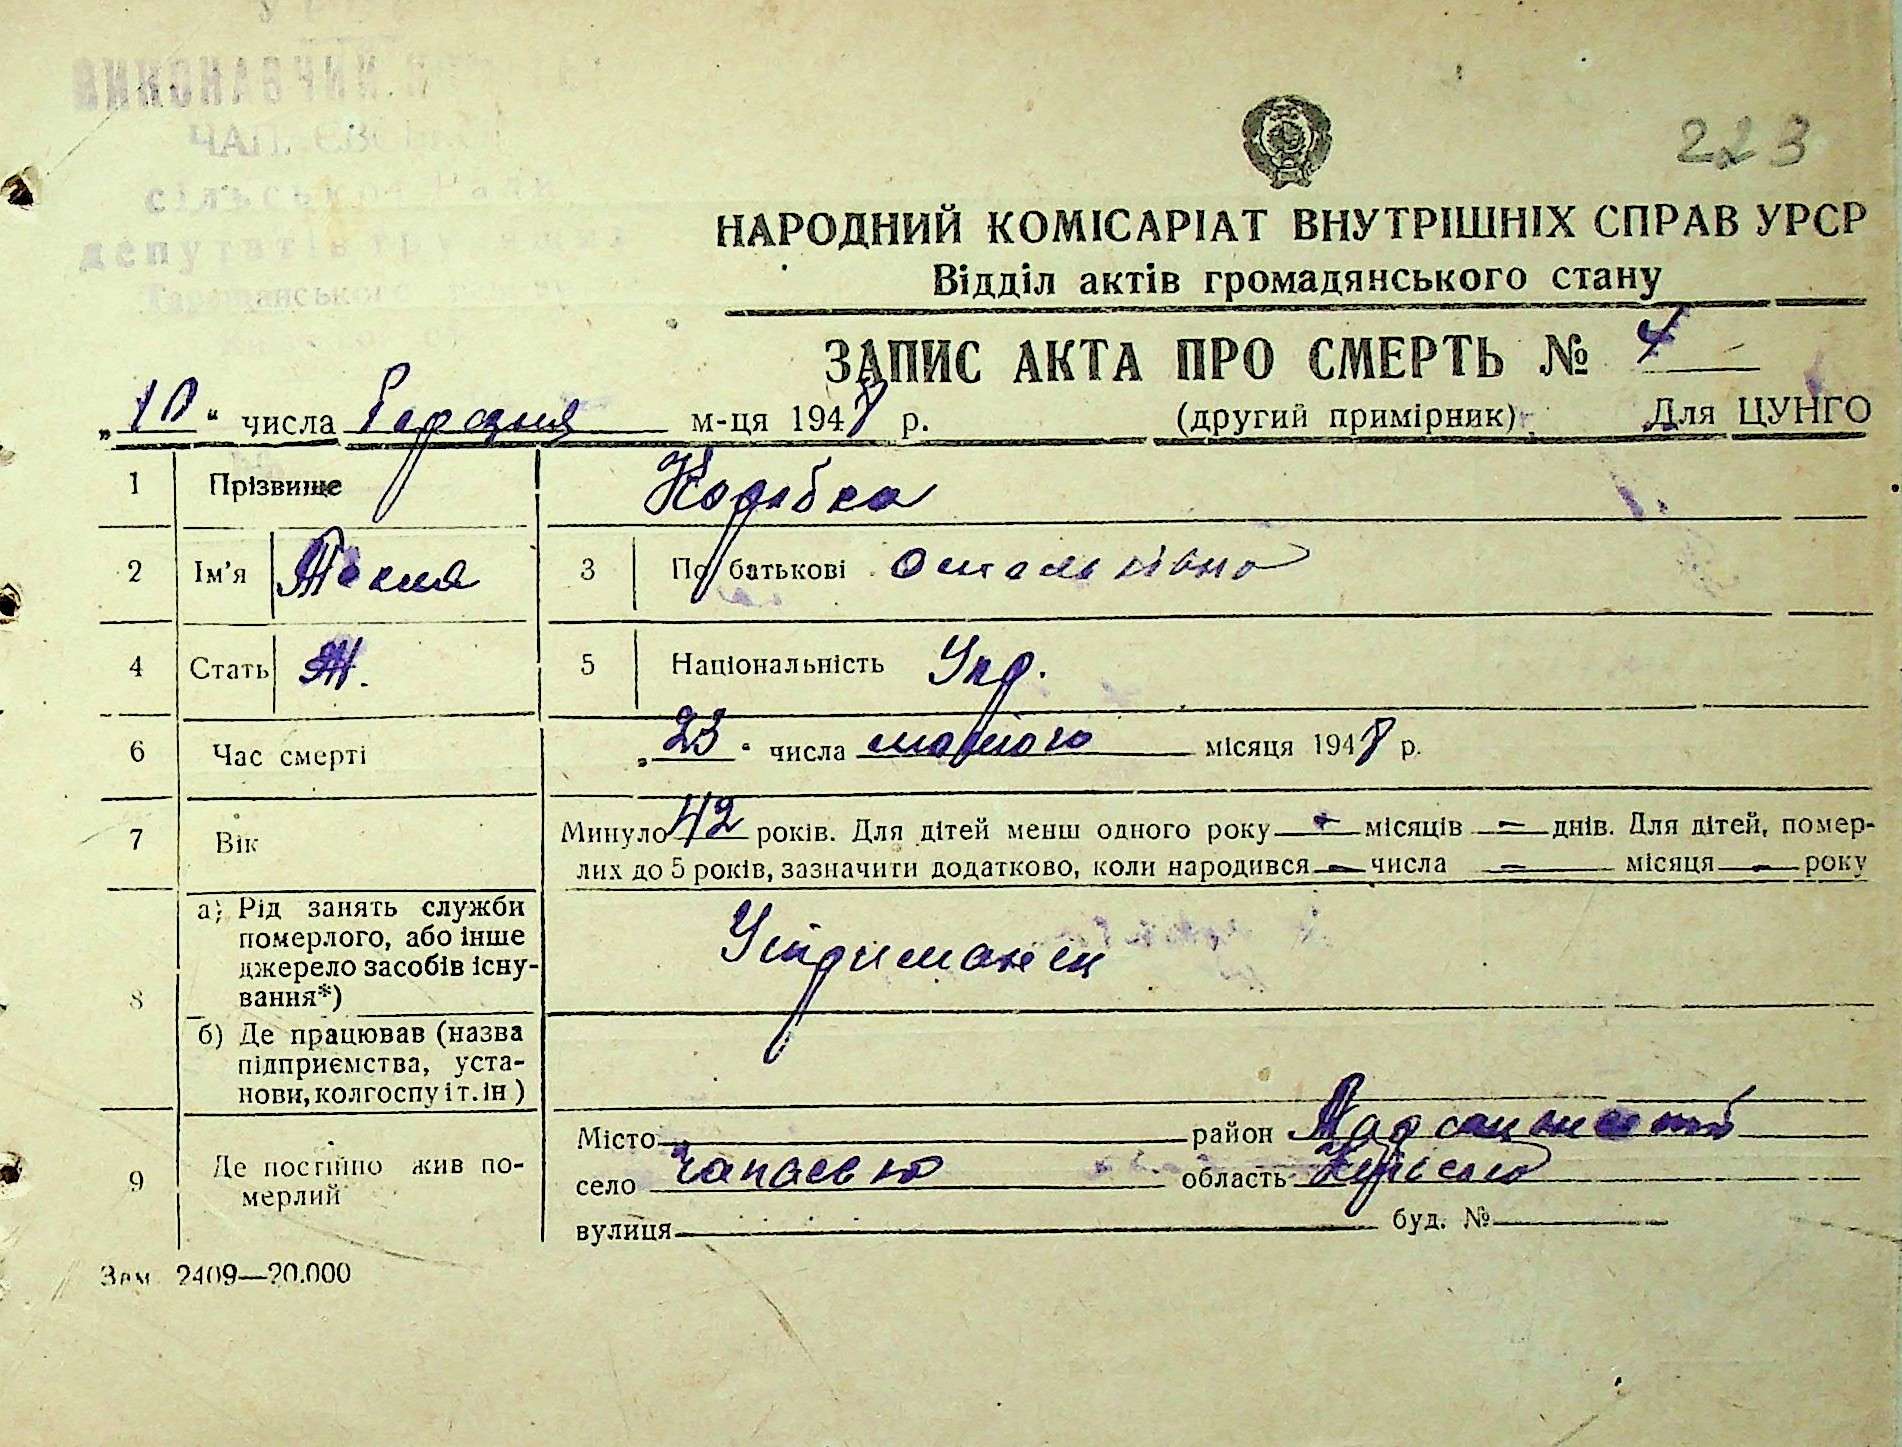 223
НАРОДНИЙ КОМІСАРІАТ ВНУТРІШНІХ СПРАВ УРСР
Відділ актів громадянського стану
ЗАПИС АКТА ПРО СМЕРТЬ №
„10“ числа Березня м-ця 1948 р. (другий примірник) Для ЦУНГО
1 Прізвище Коробка
2 Ім'я Текля 3 По батькові Остапівна
4 Стать Ж. 5 Національність Укр.
6 Час смерті „23“ числа лютого місяця 1948 р.
7 Вік Минуло 42 років. Для дітей менш одного року — місяців — днів. Для дітей, помер-
лих до 5 років, зазначити додатково, коли народився — числа — місяця — року
8 а) Рід занять служби
померлого, або інше
джерело засобів існу-
вання*) Утриманец
б) Де працював (назва
підприємства, уста-
нови, колгоспу і т. ін)
9 Де постійно жив по-
мерлий
Місто район
село Чапаєвка область Київська
вулиця буд. №
Зам. 2409—20.000